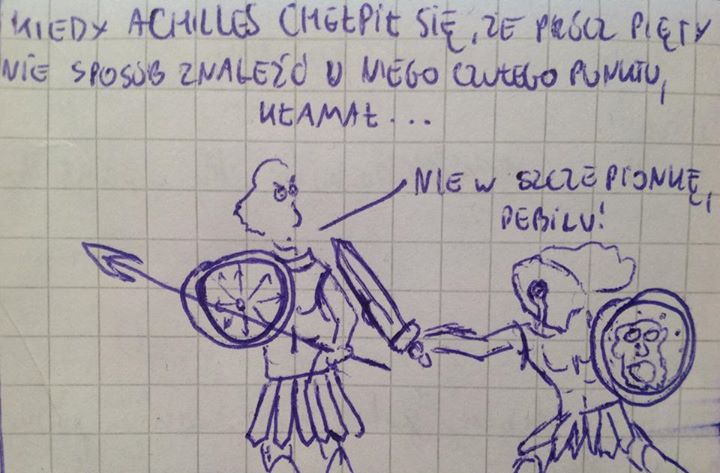 KIEDY ACHILLES CHEŁPIŁ SIĘ, ŻE PRÓCZ PIĘTY
NIE SPOSÓB ZNALEŹĆ U NIEGO CZUŁEGO PUNKTU,
KŁAMAŁ...
NIE W SZCZEPIONKĘ,
DEBILU!